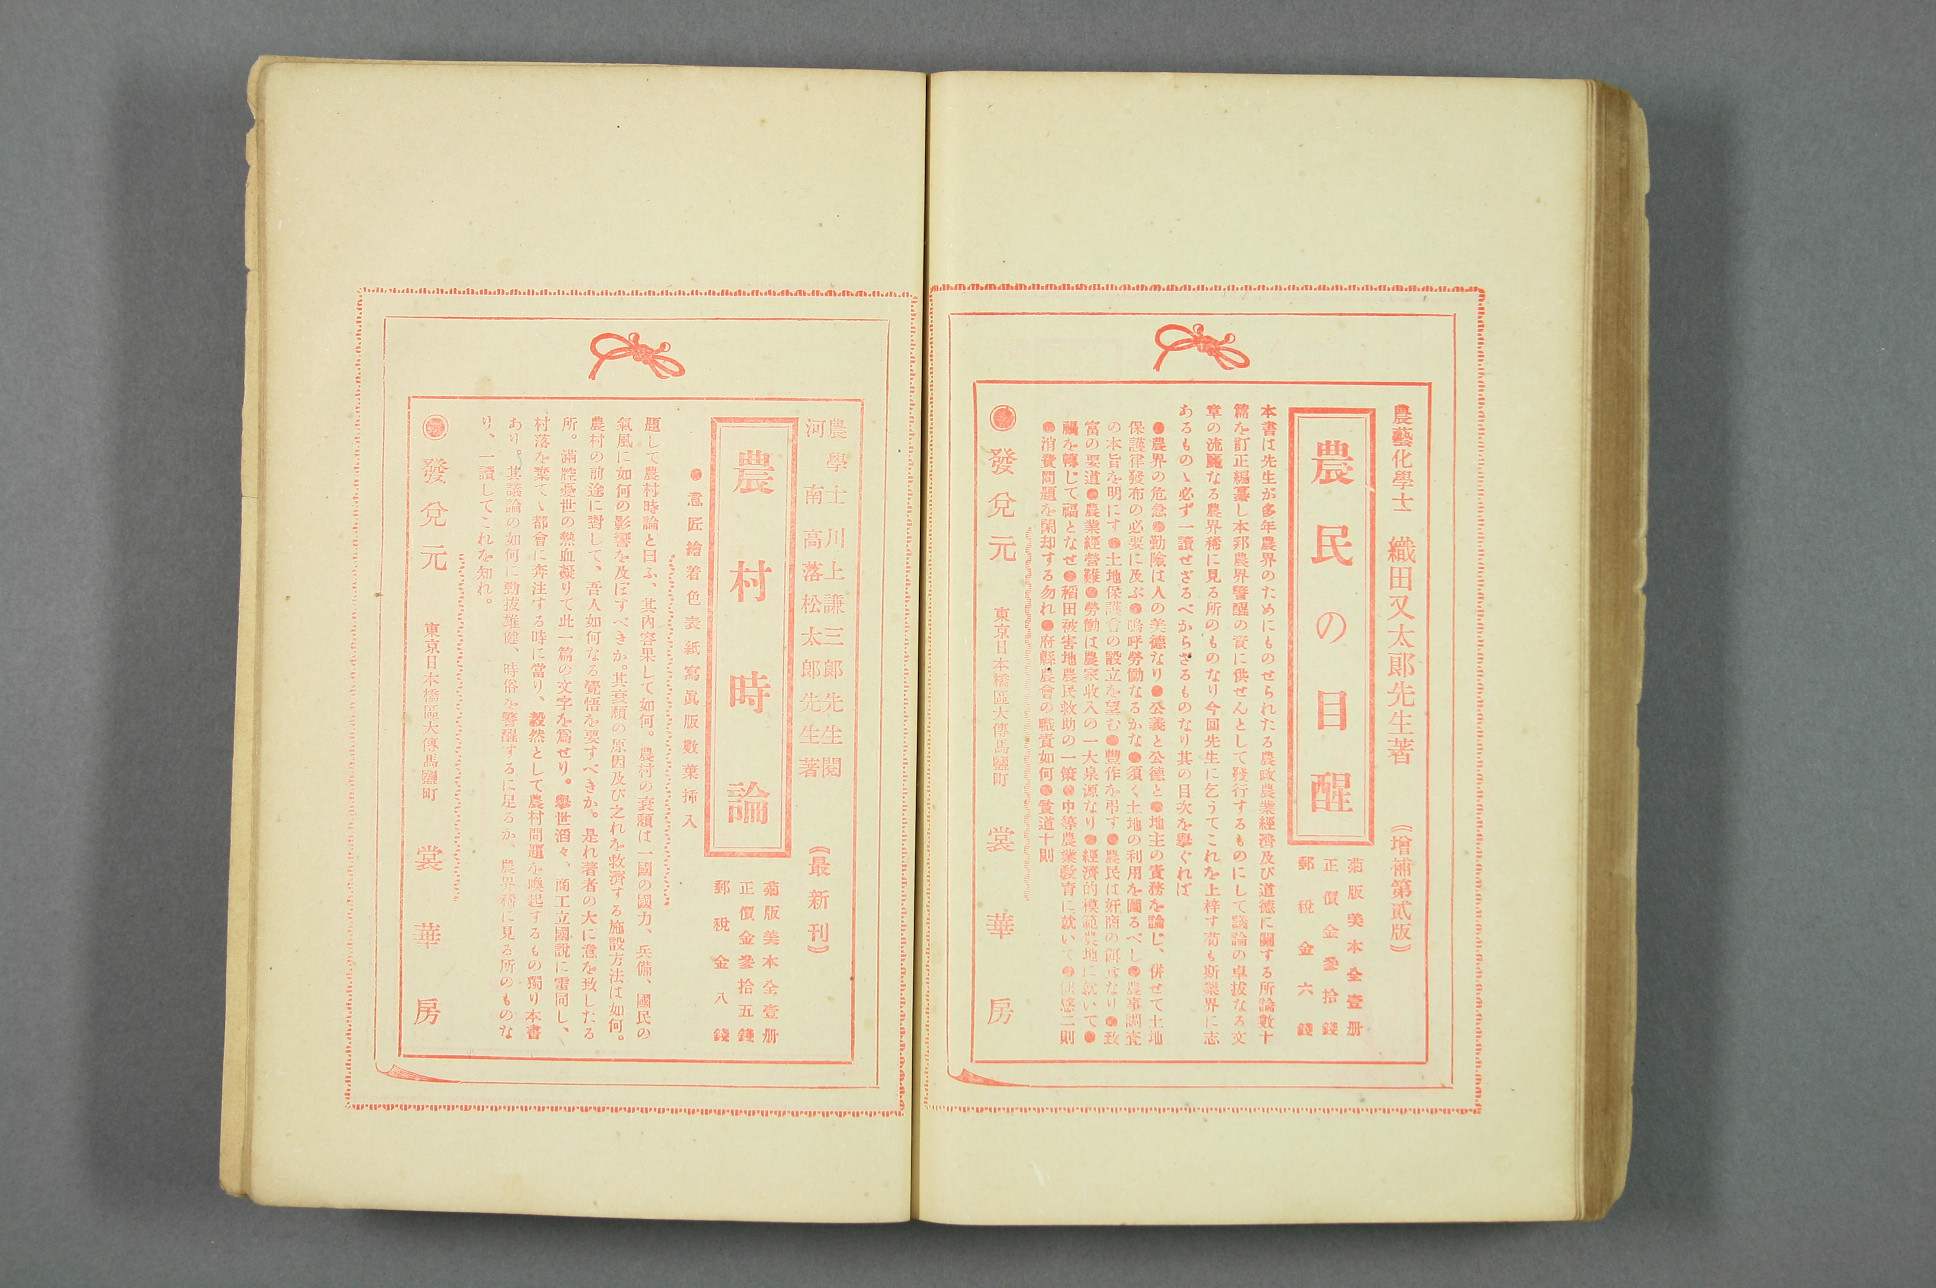 農藝化學士 織田又太郎先生著 《增補第貳版》
農民の目醒
菊版美本全壹册
正價金參拾錢
郵稅金六錢
本書は先生が多年農界のためにものせられたる農政農業經濟及び道德に關する所論數十
篇を訂正編纂し本邦農界警醒の資に供せんとして發行するものにして議論の卓拔なる文
章の流麗なる農界稀に見る所のものなり今回先生に乞うてこれを上梓す苟も斯業界に志
あるもの丶必ず一讀せざるべからざるものなり其の目次を擧ぐれば
●農界の危急●勤險は人の美德なり●公義と公德と●地主の責務を論じ、併せて土地
保護律發布の必要に及ぶ●嗚呼勞働なるかな●須く土地の利用を圖るべし●農事調査
の本旨を明にす●土地保護會の設立を望む●豐作を弔す●農民は奸商の餌食なり●致
富の要道●農業經營難●勞働は農家收入の一大泉源なり●經濟的模範農地に就いて●
禍を轉じて福となせ●稻田被害地農民救助の一策●中等農業敎育に就いて●
●消費問題を閑却する勿れ●府縣農會の職責如何●農道十則
發兌元 東京日本橋區大傳馬鹽町 裳華房
農學士 川上謙三郎先生閱
河南 高落松太郎先生著 《最新刊》
農村時論
菊版美本全壹册
正價金參拾五錢
郵稅金八錢
●意匠繪着色表紙寫眞版數葉挿入
題して農村時論と曰ふ、其內容果して如何。農村の衰頽は一國の國力、兵備、國民の
氣風に如何の影響を及ぼすべきか。其衰頽の原因及び之れを救濟する施設方法は如何。
農村の前途に對して、吾人如何なる覺悟を要すべきか。是れ著者の大に意を致したる
所。滿腔憂世の熱血凝りて此一篇の文字を爲せり。擧世滔々、商工立國說に雷同し、
村落を棄て丶都會に奔注する時に當り、毅然として農村問題を喚起するもの獨り本書
あり。其議論の如何に勁拔雄健、時俗を警醒するに足るか、農界稀に見る所のものな
り、一讀してこれを知れ。
發兌元 東京日本橋區大傳馬鹽町 裳華房